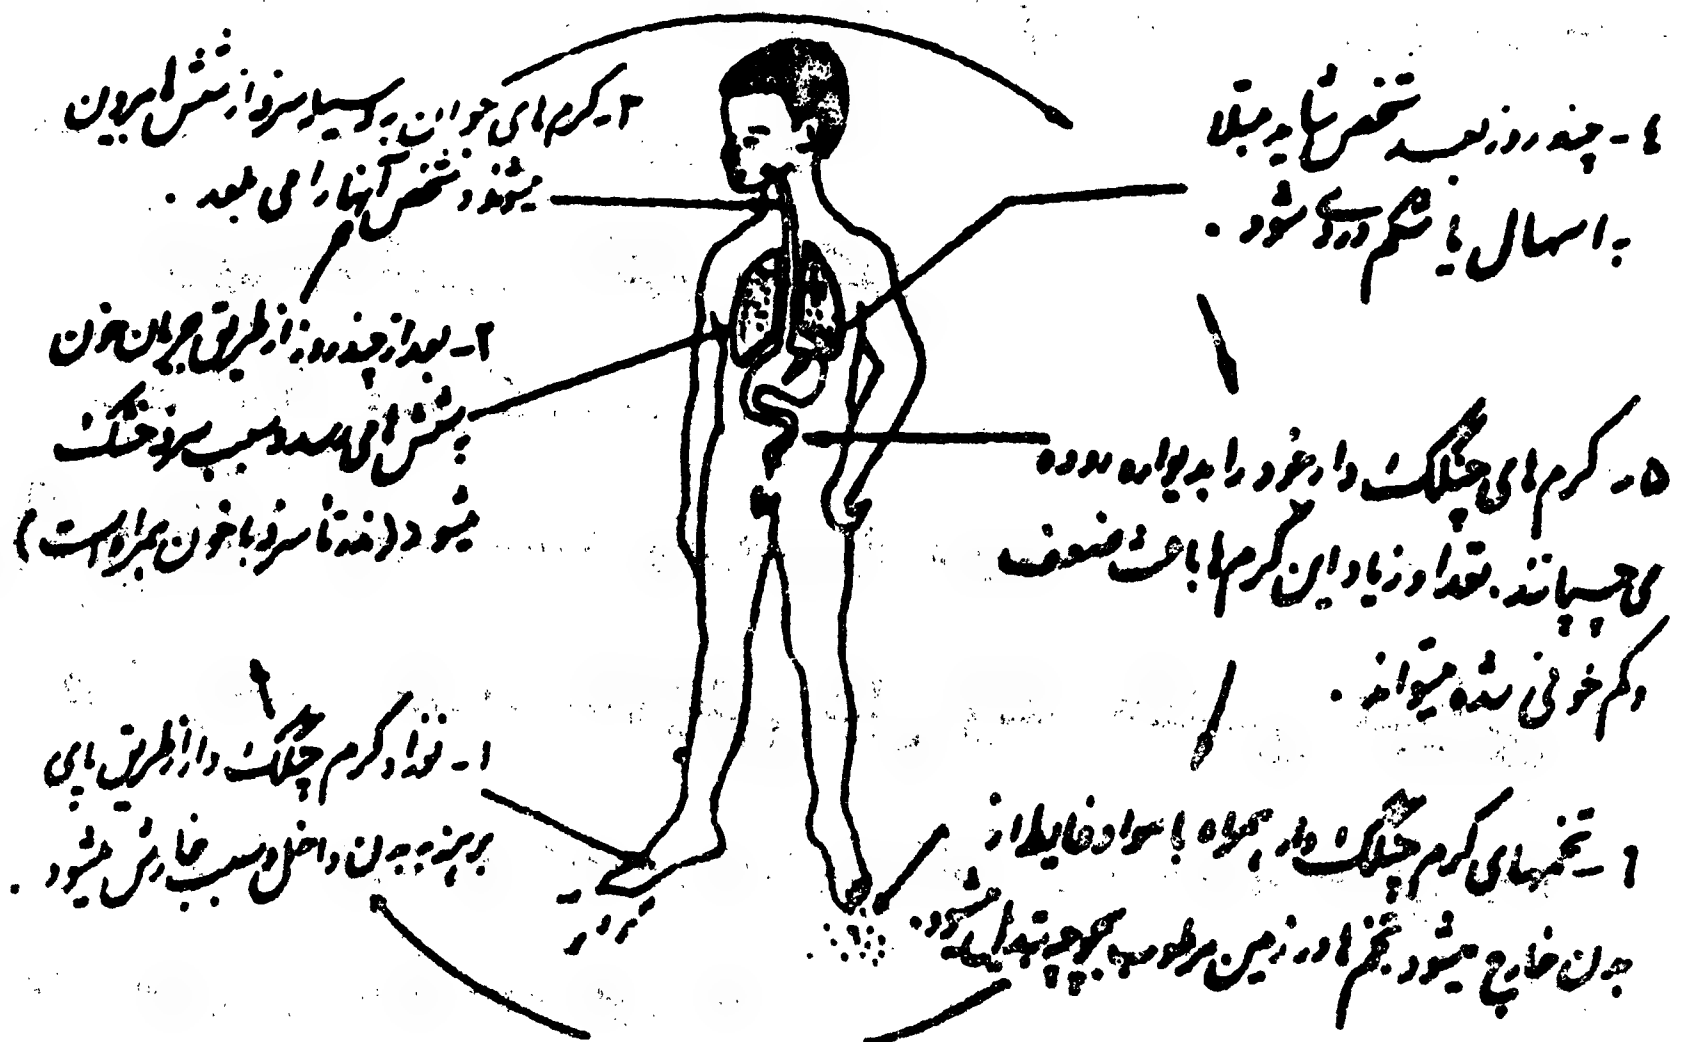 ۱- نوزاد کرم چنگک دار از طریق پای
برهنه به بدن داخل و سبب خارش میشود .
۲- بعد از چند روز از طریق جریان خون
بشش ها می رسد و سبب سرفه خشک
میشود ( ندرتاً سرفه با خون همراه است )
۳- کرم های جوان به وسیله سرفه از شش ها بیرون
میشوند و شخص آنها را می بلعد .
٤- چند روز بعد شخص شاید مبتلا
به اسهال یا شکم دردی شود .
۵- کرم های چنگک دار خود را به دیواره روده
می چسپانند . تعداد زیاد این کرم ها باعث ضعف
و کم خونی شده میتواند .
٦- تخمهای کرم چنگک دار همراه با مواد غایطه از
بدن خارج میشود تخم ها در زمین مرطوب به چوچه تبدیل میشود .